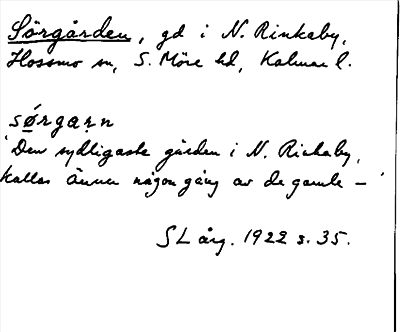 Sörgården, gd i N. Rinkaby,
Hossmo sn, S. Möre hd, Kalmar l.
sørgaṛn
'Den sydligaste gården i N. Rinkaby,
kallas ännu någon gång av de gamle – '
SL årg. 1922 s. 35.